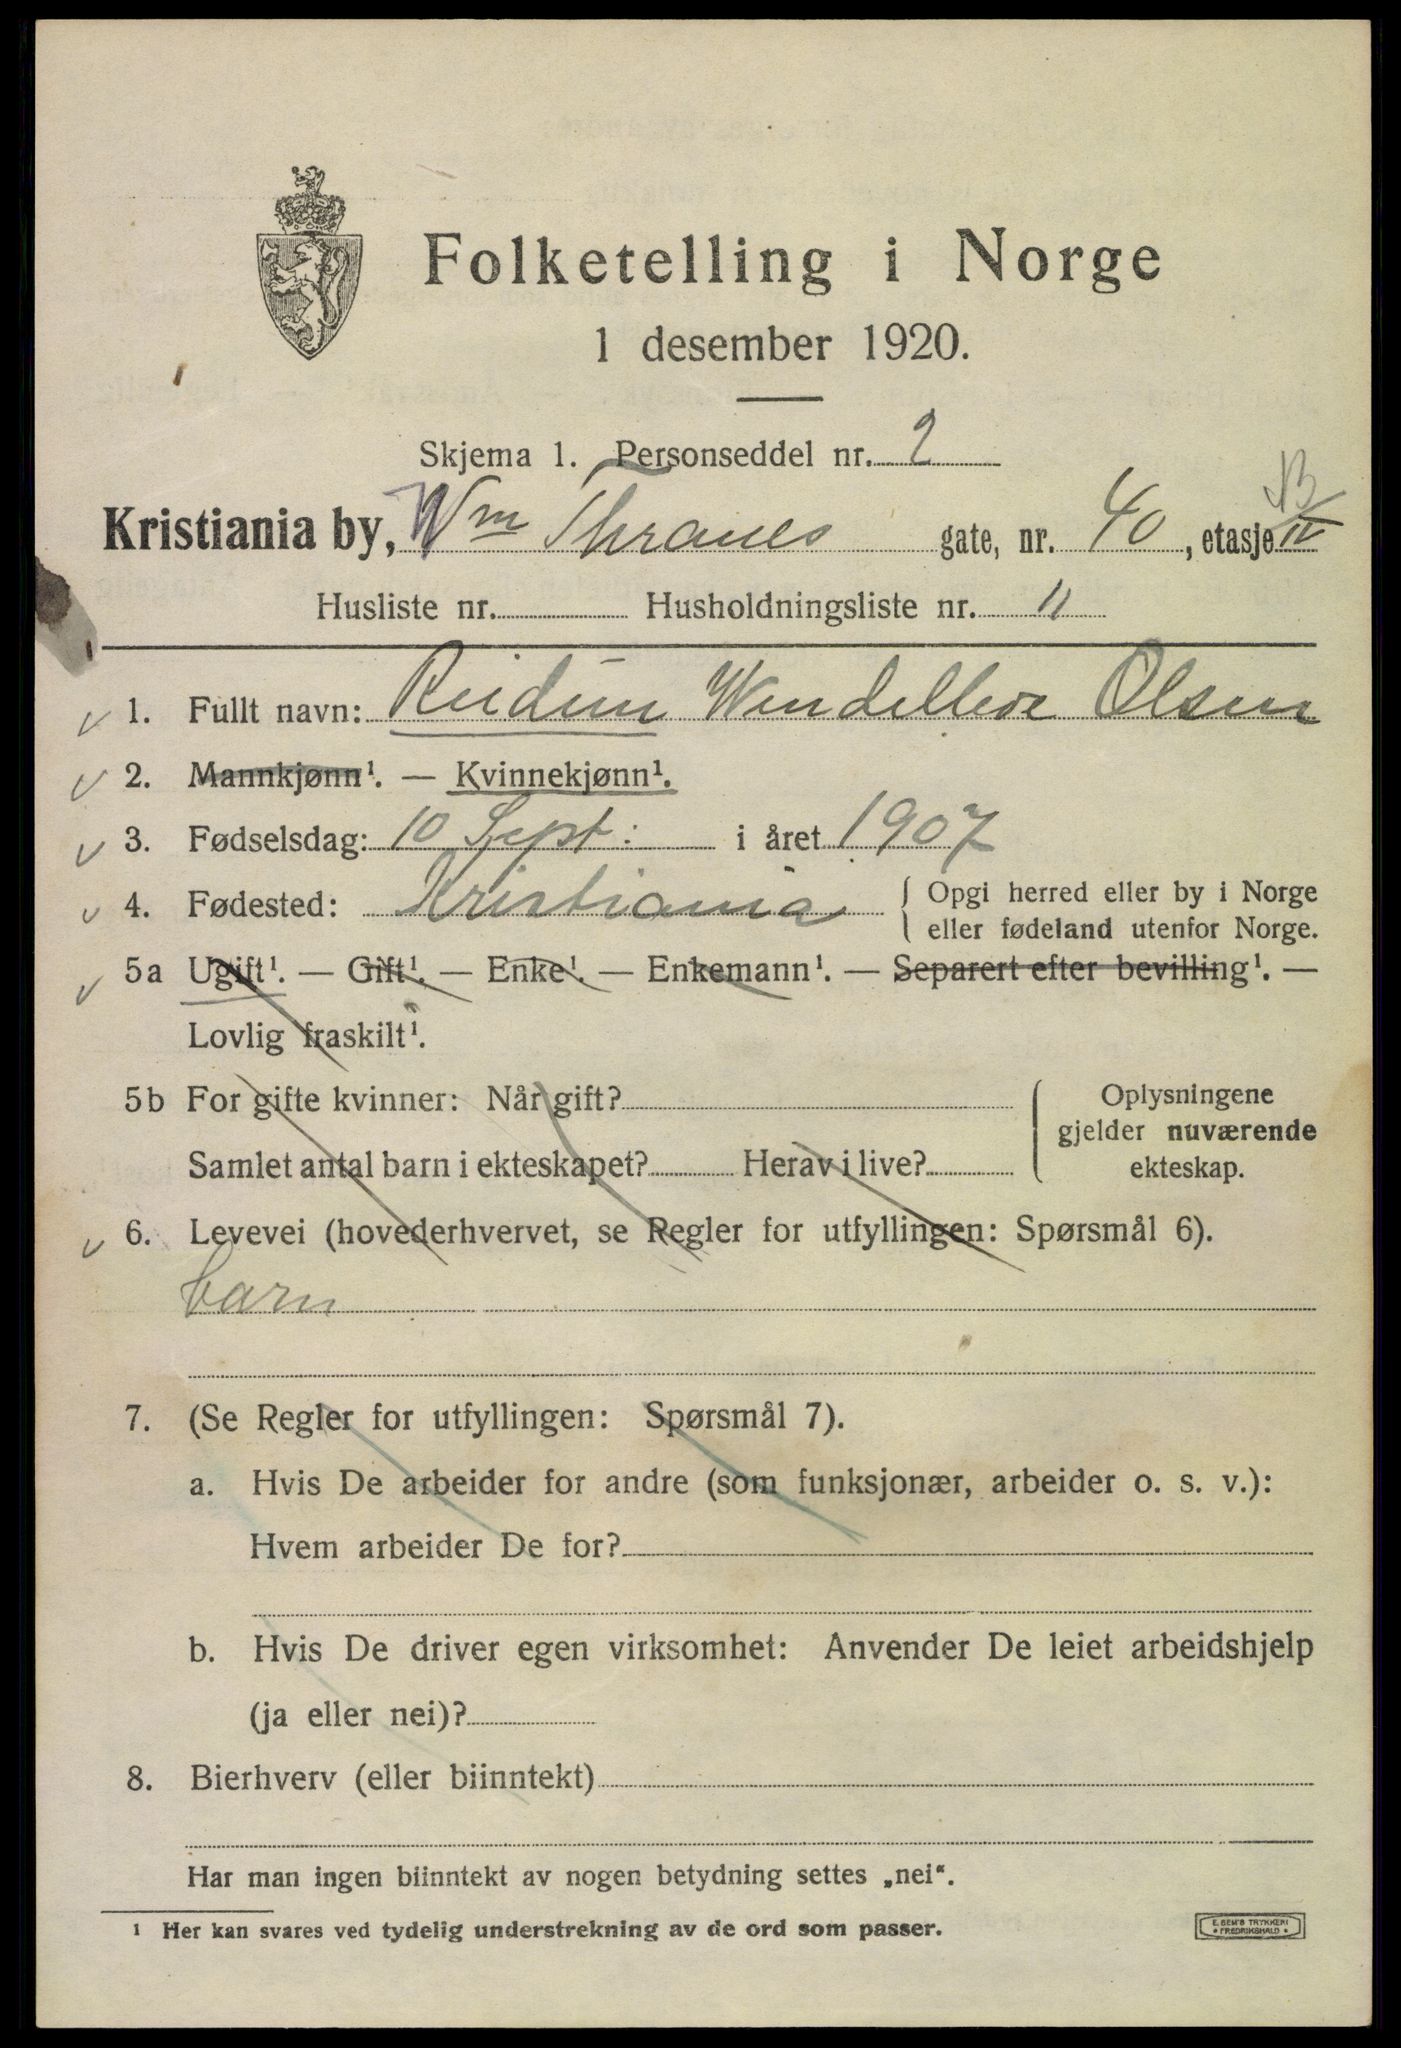 Folketelling i Norge
1 desember 1920.
Skjema 1. Personseddel nr. 2
Kristiania by, Wm Thranes gate, nr. 40, etasje IV
Husliste nr. Husholdningsliste nr. 11
1. Fullt navn: Reidun Olsen
2. Mannkjønn¹. — Kvinnekjønn¹.
3. Fødselsdag: 10 Sept: i året 1907
4. Fødested: Kristiania { Opgi herred eller by i Norge
eller fødeland utenfor Norge.
5a Ugift¹. — Gift¹. — Enke¹. — Enkemann¹. — Separert efter bevilling¹. —
Lovlig fraskilt¹.
5b For gifte kvinner: Når gift?
Samlet antal barn i ekteskapet? Herav i live?
Oplysningene
gjelder nuværende
ekteskap.
6. Levevei (hovederhvervet, se Regler for utfyllingen: Spørsmål 6).
barn
7. (Se Regler for utfyllingen: Spørsmål 7).
a. Hvis De arbeider for andre (som funksjonær, arbeider o. s. v.):
Hvem arbeider De for?
b. Hvis De driver egen virksomhet: Anvender De leiet arbeidshjelp
(ja eller nei)?
8. Bierhverv (eller biinntekt)
Har man ingen biinntekt av nogen betydning settes „nei“.
¹ Her kan svares ved tydelig understrekning av de ord som passer.
E. SEM'S TRYKKERI
FREDRIKSHALD